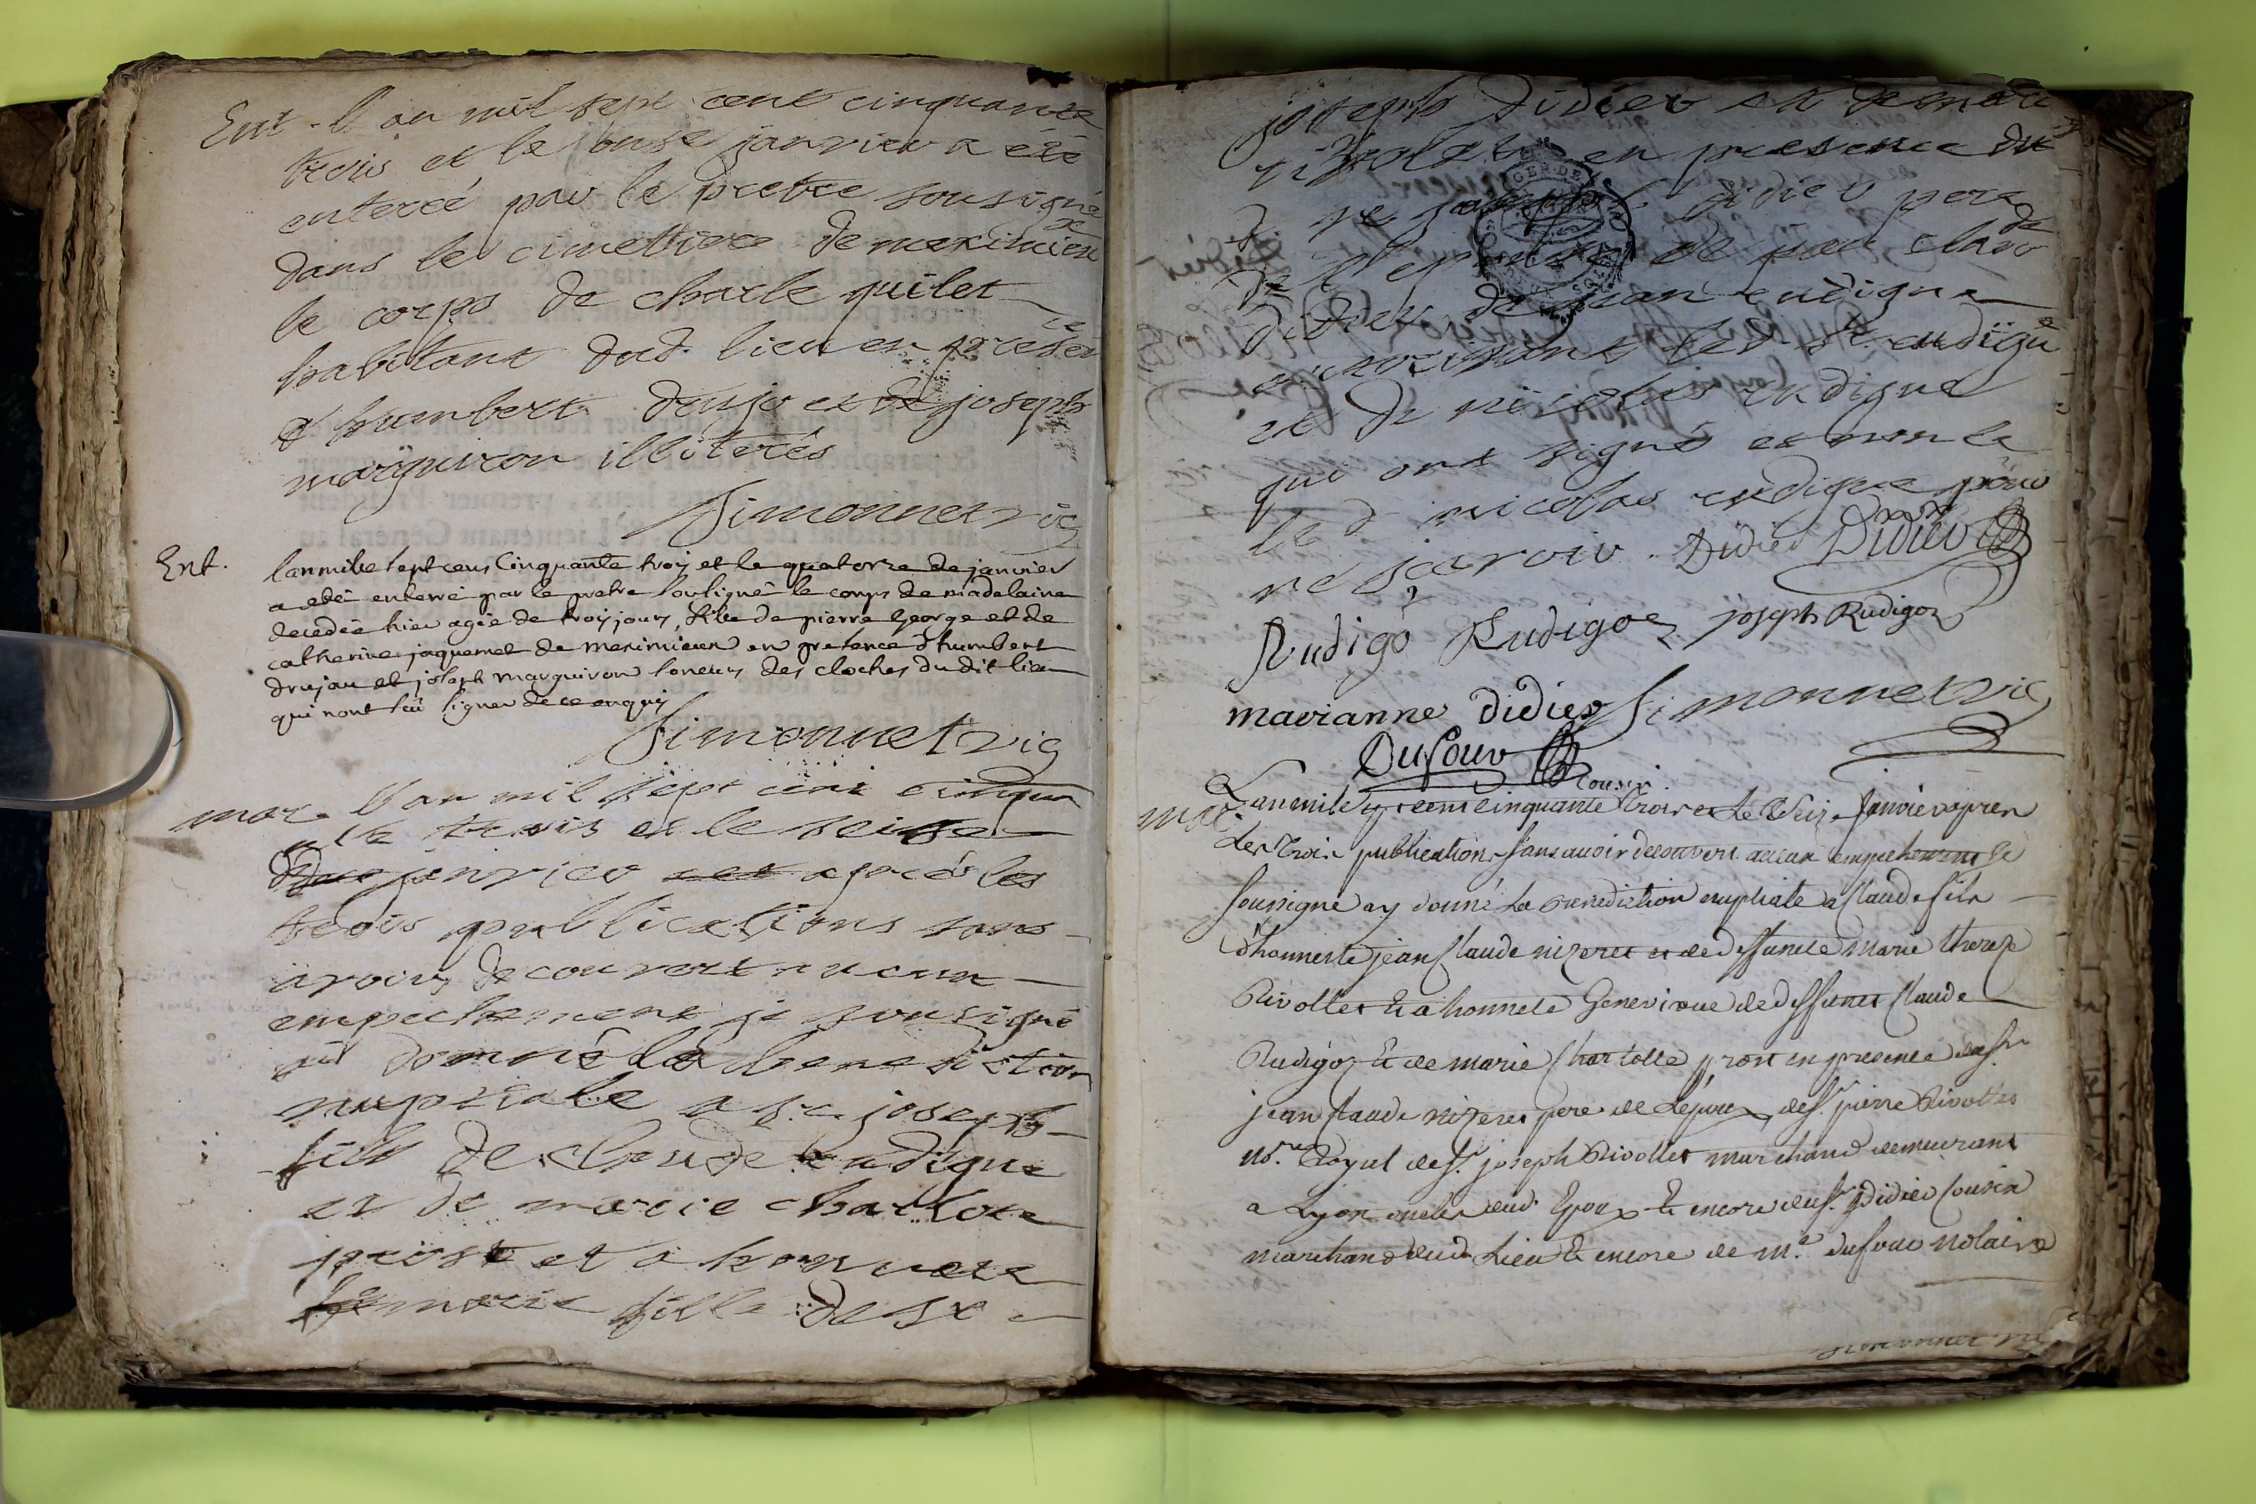 Ent. L'an mil sept cent cinquante
trois et le onse janvier a été
enterré par le pretre sousigné
dans le cimettiere de meximieu
le corps de charle quilet
habitant dud. lieu en presen
ce
d'humbert drujo et de joseph
marguiron illiterés
Simonnet vic
Ent. lan mille sept cens Cinquante troy et le quatorze de janvier
a eté enterré par le pretre soussigné le corps de madelaine
decedée hier agée de troy jours, fille de pierre George et de
catherine jaquemet de meximieux en presence d'humbert
drujau et joseph marguiron soneurs des cloches du dit lieu
qui nont sû signer de ce enquis
Simonnet vic
mar. L'an mil sept cent cinqua
nte trois et le seise
janvier et aprés les
trois publications sans
avoir decouvert aucun
empechement je sousigné
ai donné la benediction
nuptiale a sr. joseph
fils de claude rudigue
et de marie charlote
prost et a honnete
marie fille de sr
joseph Didier et de mari
rivolet en presence du
d. sr joseph didier pere
de l'epouse et de jean claude
didier de jean rudigue
led. sr. rudigue
et de nicolas rudigue
qui ont signé et non le
le d nicolas rudigue pour
ne sçavoir. Didier Didier
Rudigo Rudigoz joseph Rudigoz
marianne didier Simonnet vic
Dufour
cousin
mar. Lan mil sept cent cinquante trois et le seize janvier apres
les trois publications sans avoir decouvert aucun empechement je
soussigné ay donné la benediction nuptiale a Claude fils
d'honneste jean Claude nizeret et de deffuncte marie thereze
Rivollet et a honnete Genevieve de deffunct Claude
Rudigoz et de marie Charlotte prost en presence de sr
jean Claude nizeret pere de l'epoux, de sr. pierre Rivollet
nore. Royal de sr. joseph Rivollet marchand demeurant
a Lyon oncles dud. Epoux et encore de sr. Didier Cousin
marchand dud. Lieu et encore de me. dufour notaire
Simonnet vic